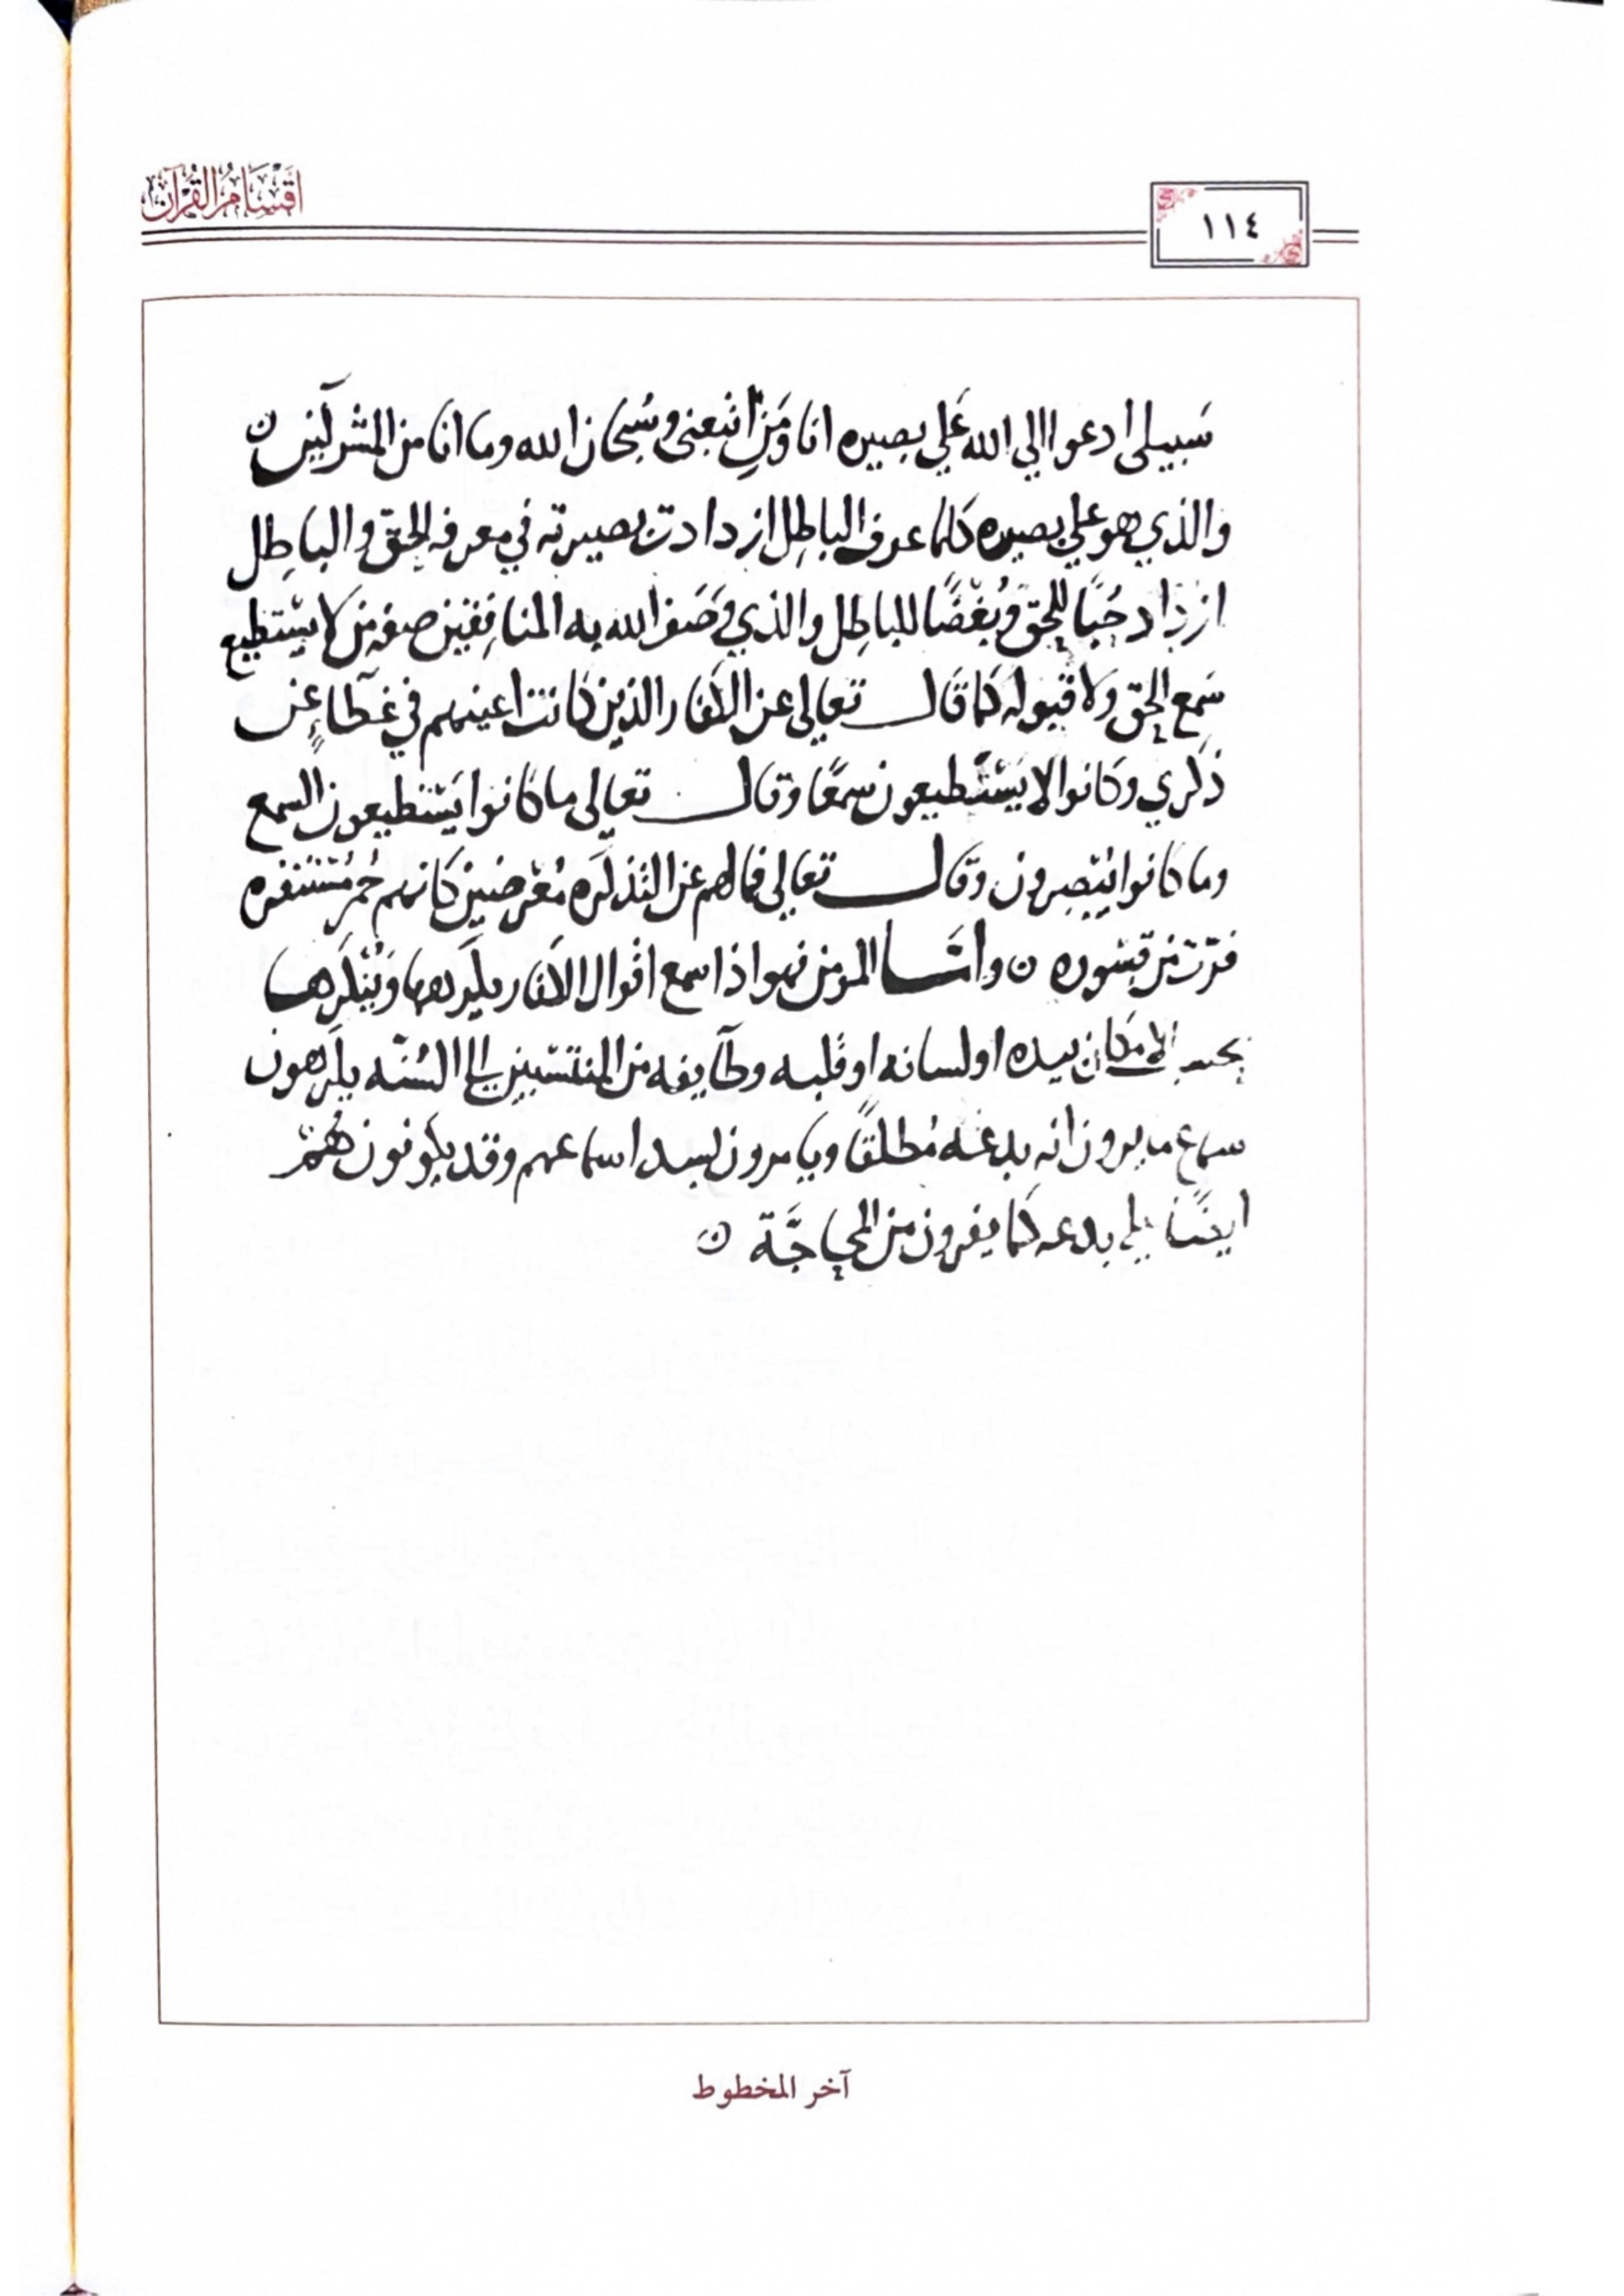 أقسام القرآن
١١٤
سَبيلى ادعوا الي الله عَلي بصيره انا وَمَنِ اتبعنى وسُبحان الله وما انا من المشركين ن
والذي هو علي بصيره كلما عرف الباطِل ازدادت بصيرته في معرفه الحق والباطِل
ازداد حُبًا للحق وبُغْضًا للباطِل والذي وَصَف الله به المنافِقين صفه من لا يسْتطيع
سَمع الحق ولا قبوله كما قَال تعالى عن الكفار الذين كانت اعينهم في غطآءٍ عن
ذكري وكانوا لا يَسْتَطيعون سمعًا وقال تعالى ما كانوا يَسْتطيعون السمع
وما كانوا يُبْصِرون وقال تعالى فما لهم عن التذكره مُعْرضين كانهم حُمر مُسْتنفره
فرّت من قسْوره ن وامّا المومن فهو اذا سمع اقوال الكفار يكرهها ويُنْكرها
بحسب الامكان بيده او لسانه او قلبه وطآيفه من المنتسبين الى السُنّه يكرهون
سماع ما يرون انه بدعَه مُطلقًا ويامرون بسد اسماعهم وقد يكونون هُمْ
ايضًا علي بدعه كما يفرون من المحاجَّة ن
آخر المخطوط